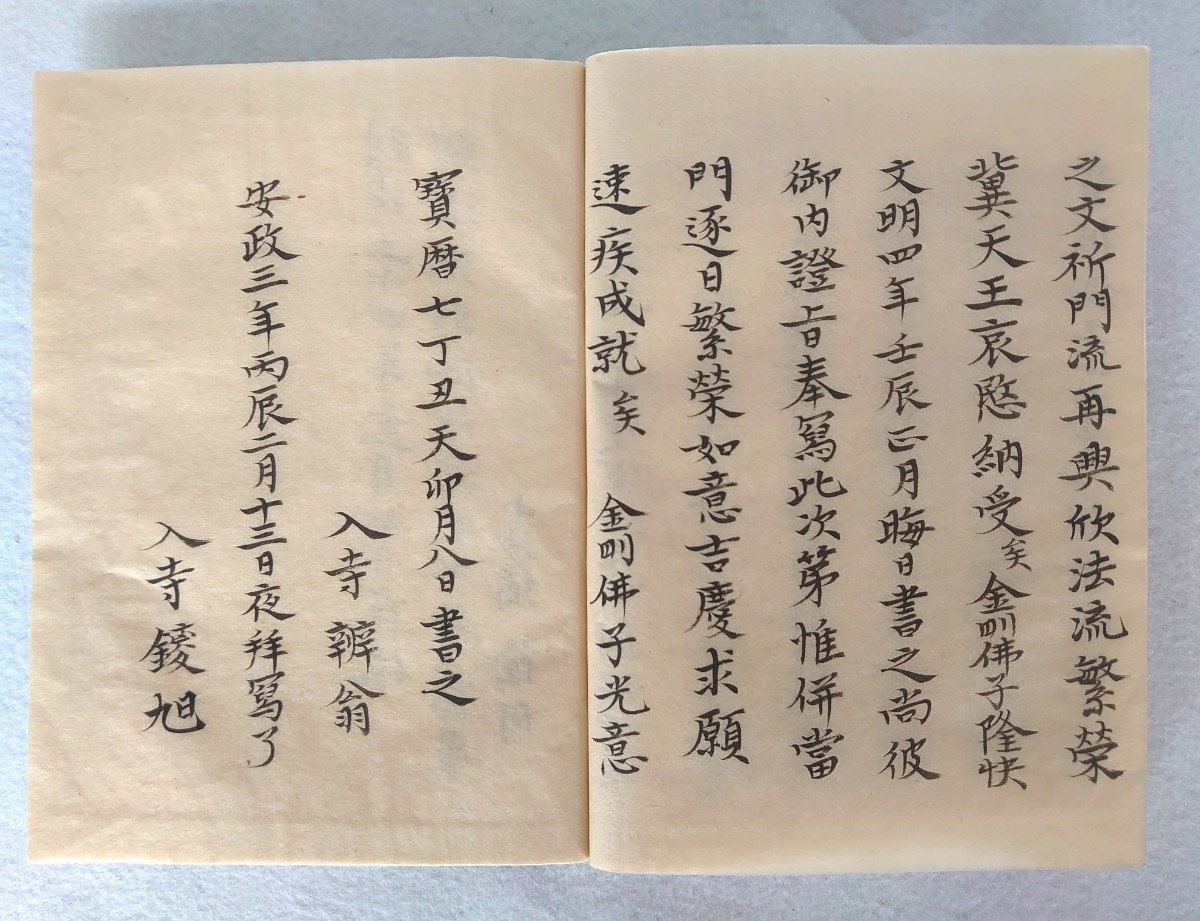 之文祈門流再興欣法流繁榮
冀天王哀愍納受矣 金剛佛子隆快
文明四年壬辰正月晦日書之尚彼
御内證旨奉寫此次第惟併當
門逐日繁榮如意吉慶求願
速疾成就矣 金剛佛子光意
寶暦七丁丑天卯月八日書之
入寺辨翁
安政三年丙辰二月十三日夜拜寫了
入寺鑁旭